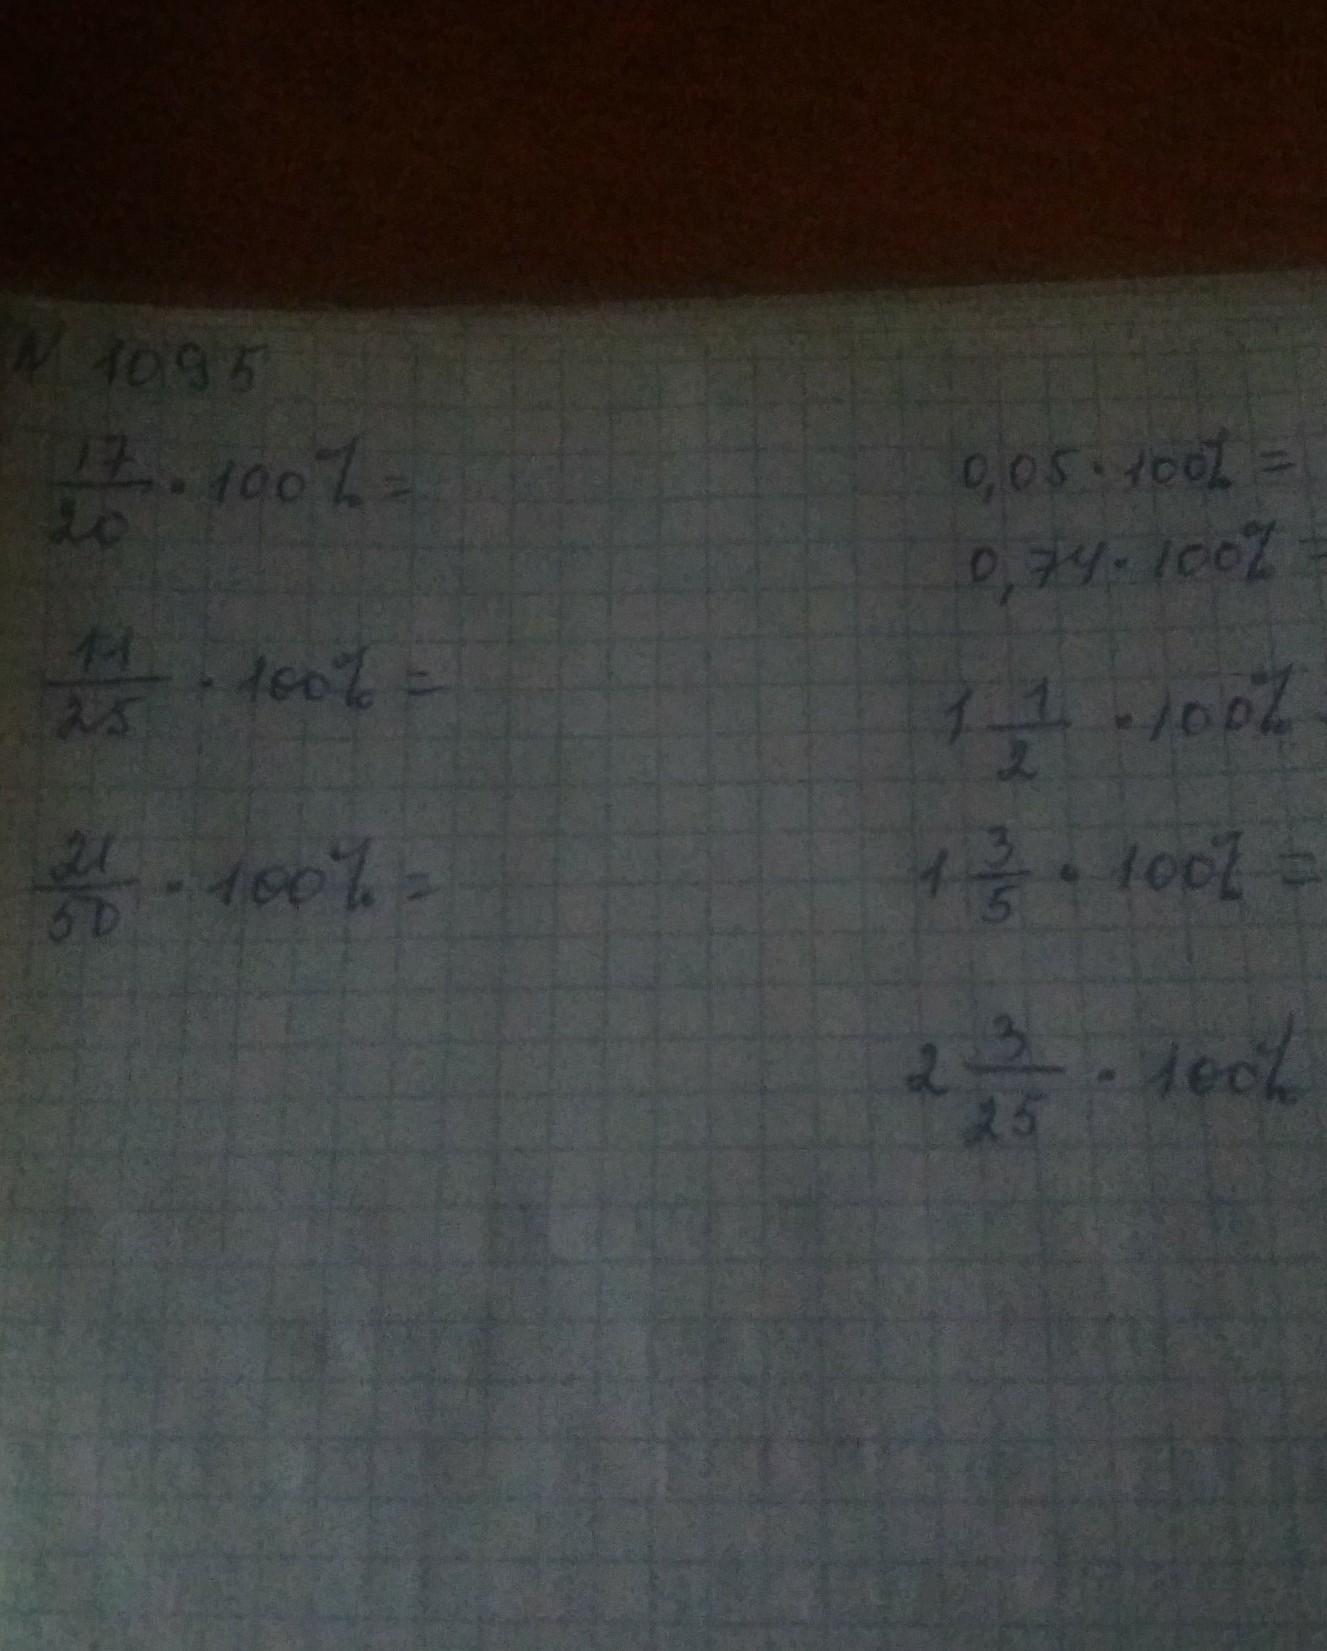 N 1095
17/20 · 100% =
11/25 · 100% =
21/50 · 100% =
0,05 · 100% =
0,74 · 100% =
1 1/2 · 100%
1 3/5 · 100% =
2 3/25 · 100%